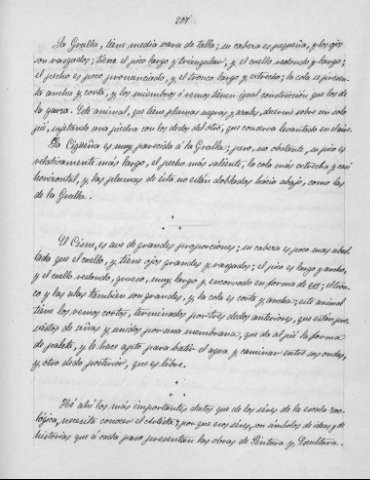 204
La Grulla, tiene media vara de talla; su cabeza es pequeña, y los ojos
son rasgados; tiene el pico largo y triangular, y el cuello redondo y largo;
el pecho es poco pronunciado, y el tronco largo y estrecho; la cola se presen-
ta ancha y corta, y los miembros ó remos tienen igual construcción que los de
la garza. Este animal, que tiene plumas negras y azules, duerme sobre un solo
pié, sujetando una piedra con los dedos del otro, que conserva levantado en el aire.
La Cigüeña es muy parecida á la Grulla; pero, no obstante, su pico es
relativamente más largo, el pecho más saliente, la cola más estrecha y casi
horizontal, y las plumas de ésta no están dobladas hácia abajo, como las
de la Grulla.
El Cisne, es ave de grandes proporciones; su cabeza es poco mas abul-
tada que el cuello, y tiene ojos grandes y rasgados; el pico es largo y ancho,
y el cuello redondo, grueso, muy largo y encorvado en forma de ese; el tron-
co y las alas tambien son grandes, y la cola es corta y ancha; este animal
tiene los remos cortos, terminados por tres dedos anteriores, que están pro-
vistos de uñas y unidos por una membrana, que da al pié la forma
de paleta, y le hace apto para batir el agua y caminar entre sus ondas,
y otro dedo posterior, que es libre.
Hé ahí los más importantes datos que de los séres de la escala zoo-
lógica, necesita conocer el Artista; porque esos séres, son símbolos de ideas y de
historias que á cada paso presentan las obras de Pintura y Escultura.